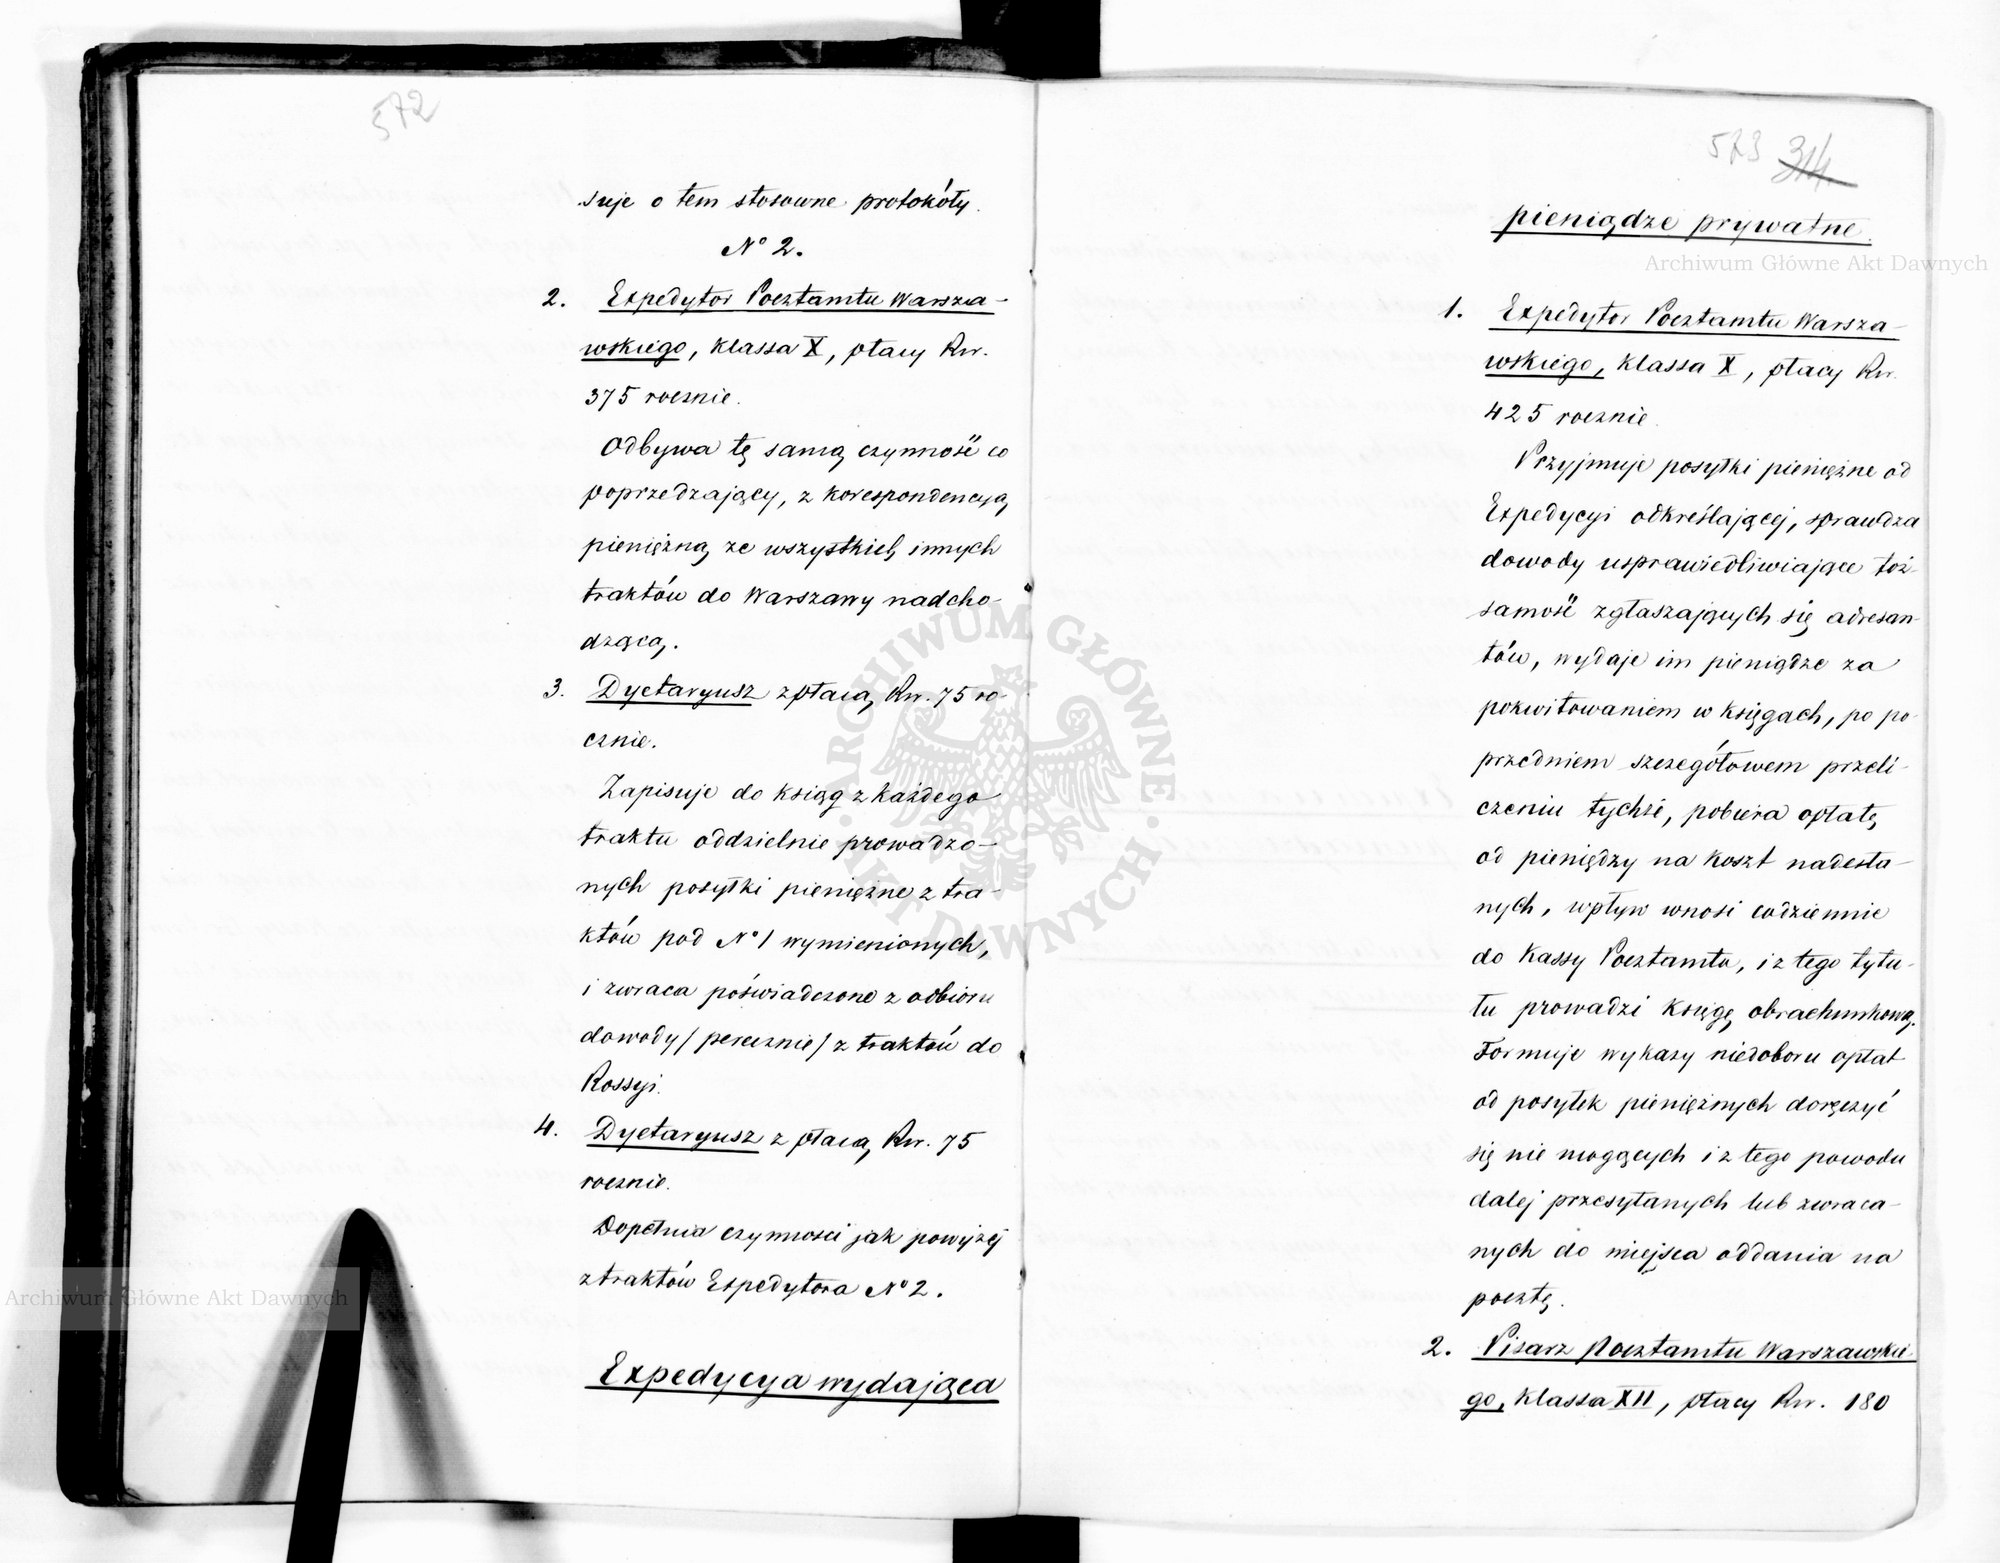 572
suje o tem stosowne protokóły.
№ 2.
2. Expedytor Pocztamtu Warsza-
wskiego, klassa X, płacy Rsr.
375 rocznie.
Odbywa tę samą czynność co
poprzedzający, z korespondencyą
pieniężną ze wszystkich innych
traktów do Warszawy nadcho-
dzącą.
3. Dyetaryusz z płacą Rsr. 75 ro-
cznie.
Zapisuje do ksiąg z każdego
traktu oddzielnie prowadzo-
nych posyłki pieniężne z tra-
któw pod № 1 wymienionych,
i zwraca poświadczone z odbioru
dowody / perecznie / z traktów do
Rossyi.
4. Dyetaryusz z płacą Rsr. 75
rocznie.
Dopełnia czynności jak powyżej
z traktów Expedytora № 2.
Expedycya wydająca
573 314
pieniądze prywatne.
1. Expedytor Pocztamtu Warsza-
wskiego, klassa X, płacy Rsr.
425 rocznie.
Przyjmuje posyłki pieniężne od
Expedycyi odkreślającej, sprawdza
dowody usprawiedliwiające toż-
samość zgłaszających się adresan-
tów, wydaje im pieniądze za
pokwitowaniem w księgach, po po-
przedniem szczegółowem przeli-
czeniu tychże, pobiera opłatę
od pieniędzy na koszt nadesła-
nych, wpływ wnosi codziennie
do Kassy Pocztamtu, i z tego tytu-
łu prowadzi księgę obrachunkową.
Formuje wykazy niedoboru opłat
od posyłek pieniężnych doręczyć
się nie mogących i z tego powodu
dalej przesyłanych lub zwraca-
nych do miejsca oddania na
pocztę.
2. Pisarz Pocztamtu Warszawskie-
go, klassa XII, płacy Rsr. 180
Archiwum Główne Akt Dawnych
Archiwum Główne Akt Dawnych
ARCHIWUM GŁÓWNE AKT DAWNYCH